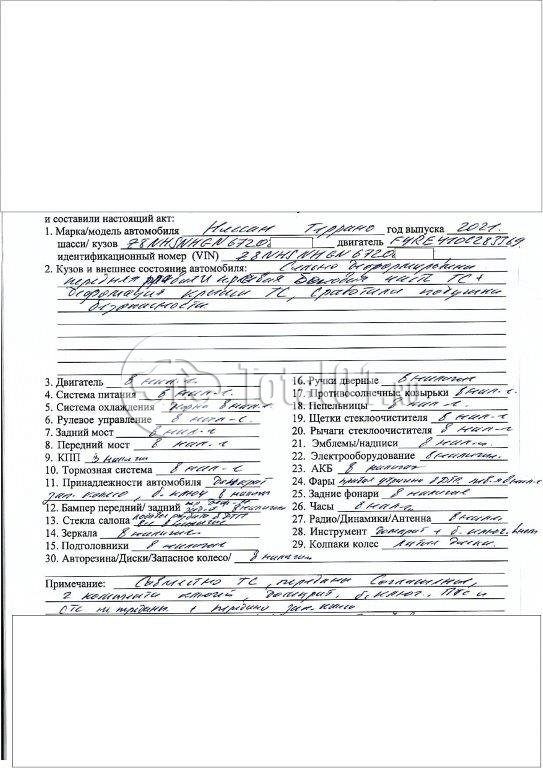 и составили настоящий акт:
1. Марка/модель автомобиля Ниссан Террано год выпуска 2021.
шасси/ кузов двигатель
идентификационный номер (VIN)
2. Кузов и внешнее состояние автомобиля: Сильно деформирована
передняя правая боковая часть ТС +
Деформация крыши ТС, сработали подушки
безопасности.
Total01.ru
3. Двигатель в нал-е.
4. Система питания в нал-е.
5. Система охлаждения в нал-е.
6. Рулевое управление в нал-е
7. Задний мост в нал-е
8. Передний мост в нал-е
9. КПП в наличии
10. Тормозная система в нал-е
11. Принадлежности автомобиля Домкрат
зап. колесо, б. ключ в налич
12. Бампер передний/ задний в наличии
13. Стекла салона
14. Зеркала в наличии
15. Подголовники в наличии
30. Авторезина/Диски/Запасное колесо/ в наличии
16. Ручки дверные в наличии
17. Противосолнечные козырьки в нал-е.
18. Пепельницы в нал-е.
19. Щетки стеклоочистителя в нал-е
20. Рычаги стеклоочистителя в нал-е
21. Эмблемы/надписи в нал-е
22. Электрооборудование в наличии
23. АКБ в наличии
24. Фары правая
25. Задние фонари в наличии
26. Часы в нал-е
27. Радио/Динамики/Антенна в налич.
28. Инструмент домкрат + б. ключ
29. Колпаки колес литые диски.
Примечание: Совместно ТС, переданы Соглашение,
2 комплекта ключей, домкрат, б. ключ. ПТС и
СТС не переданы + передано зап. колесо